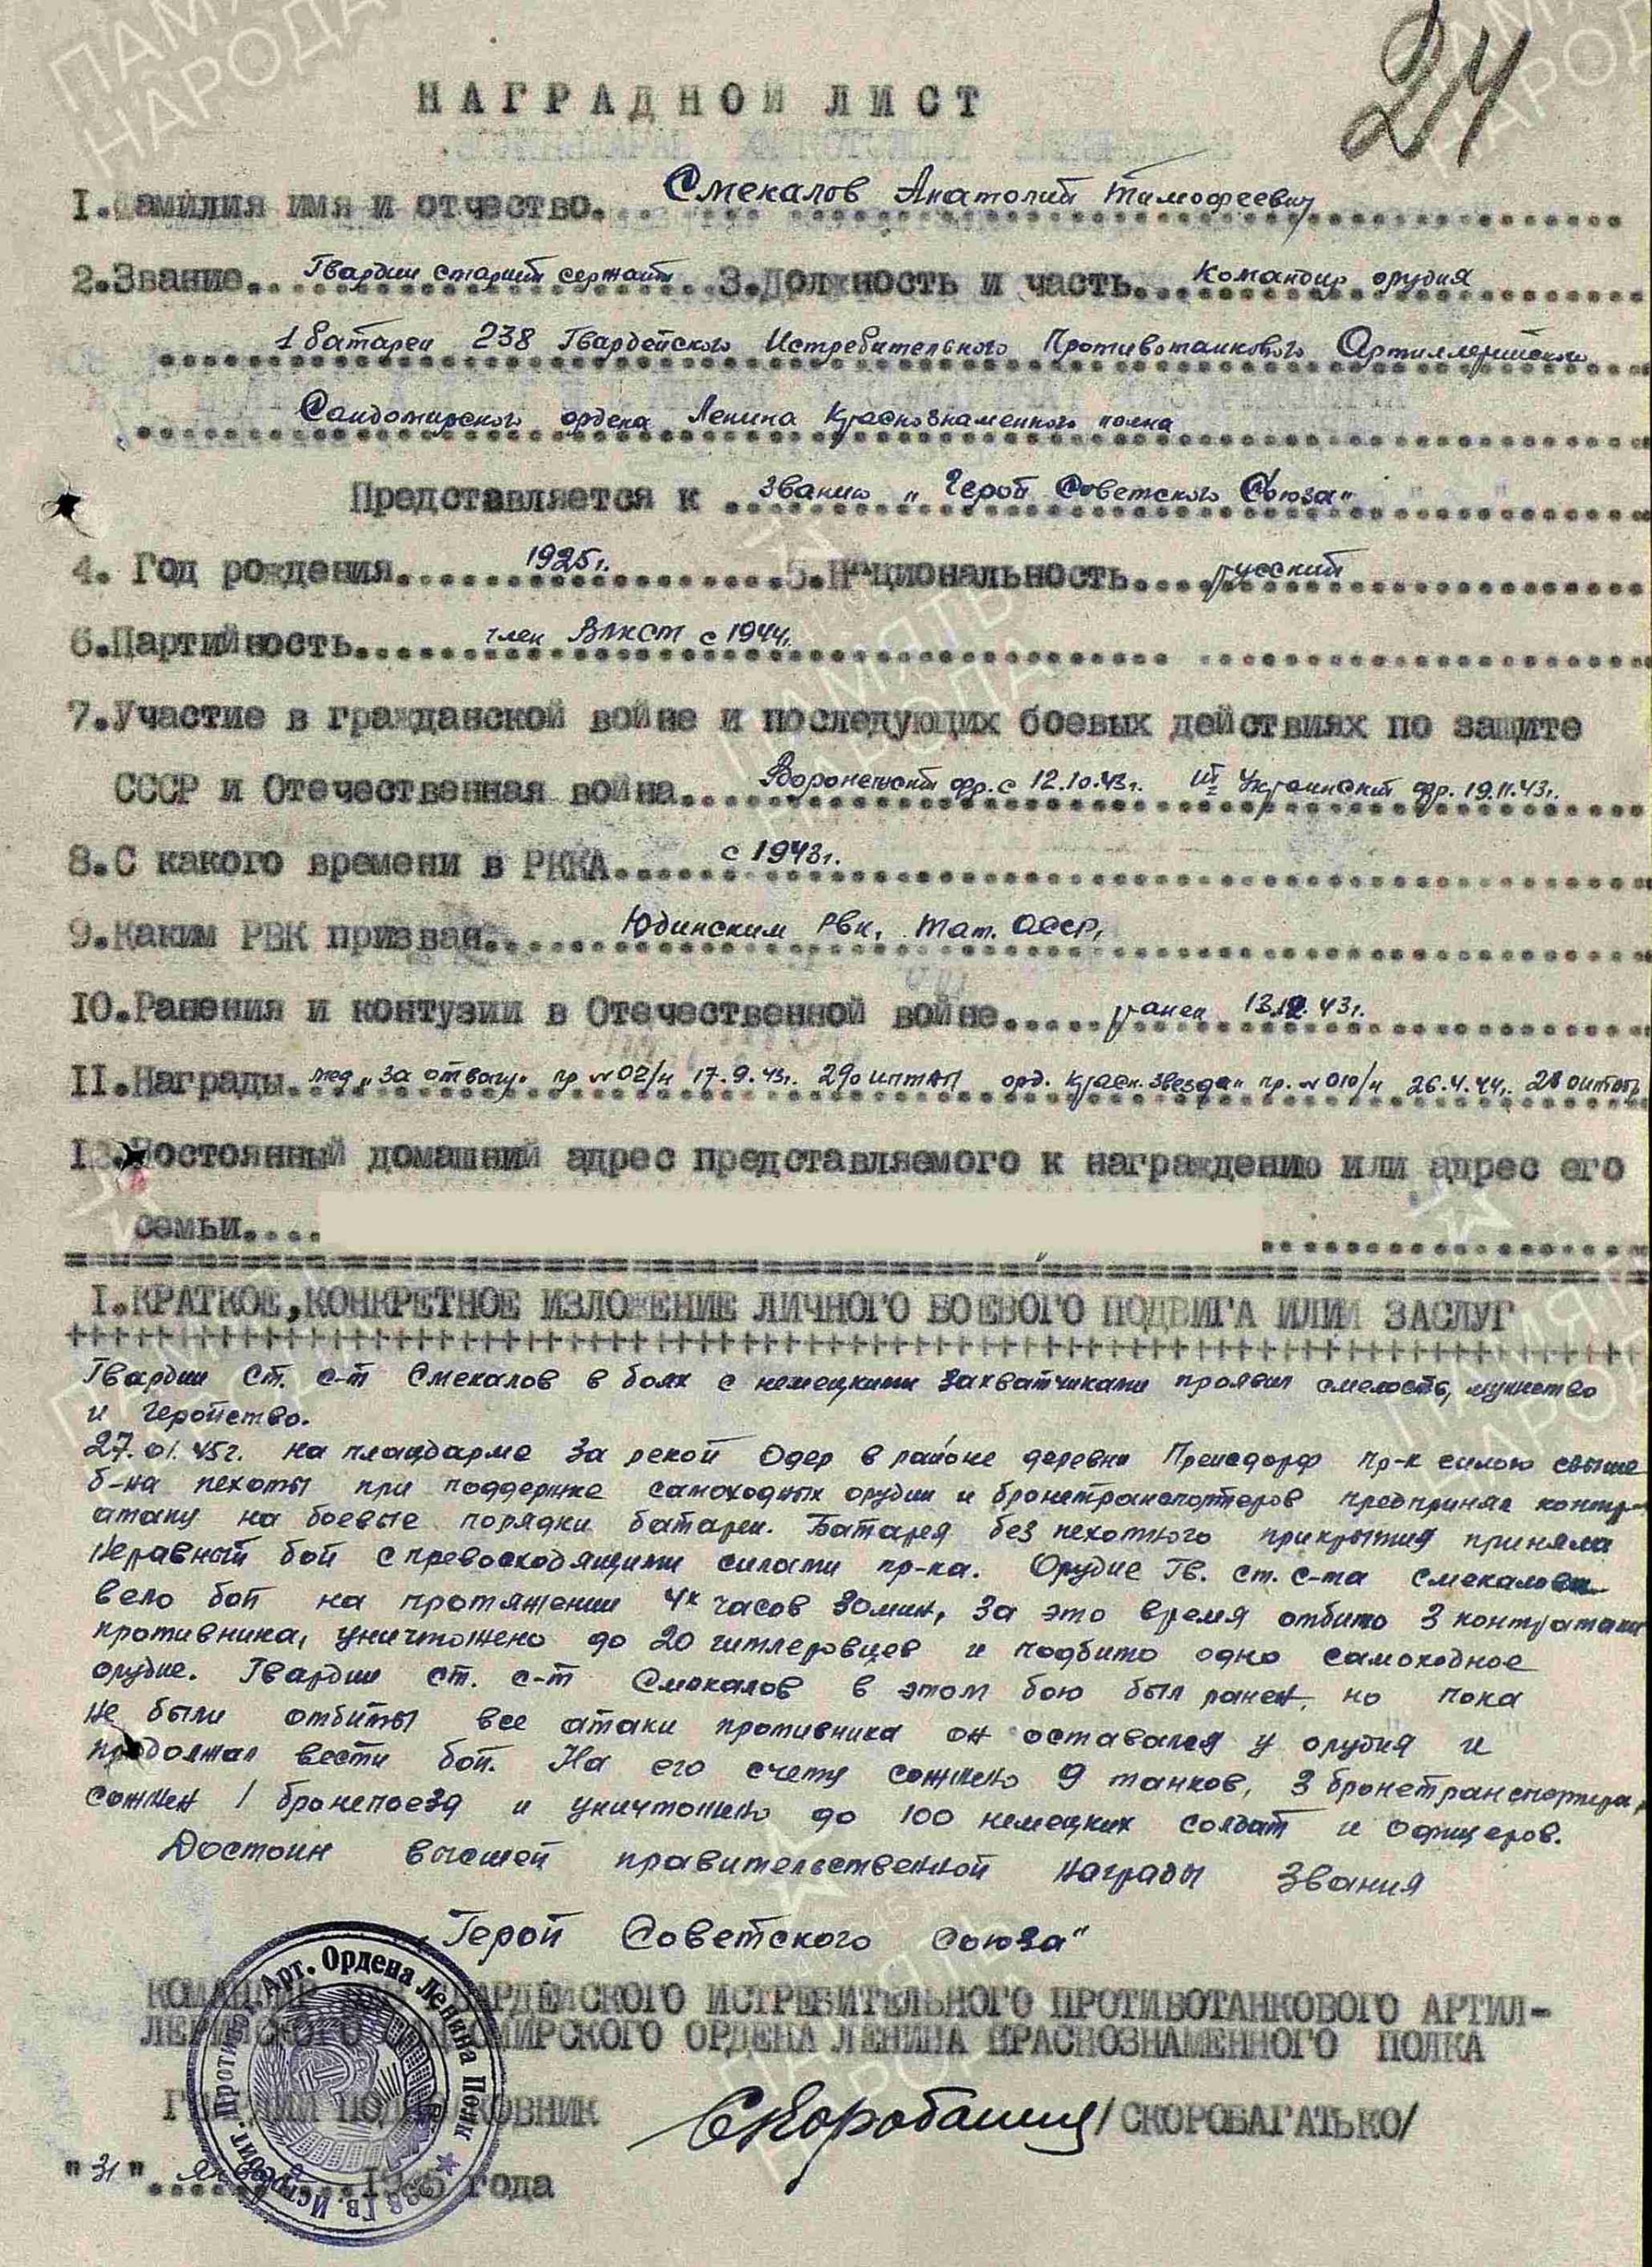 24
НАГРАДНОЙ ЛИСТ
I.Фамилия имя и отчество. Смекалов Анатолий Тимофеевич
2.Звание. Гвардии старший сержант 3.Должность и часть. Командир орудия
1 батареи 238 Гвардейского Истребительного Противотанкового Артиллерийского
Сандомирского ордена Ленина Краснознаменного полка
Представляется к званию „Герой Советского Союза"
4. Год рождения 1925г. 5.Национальность русский
6.Партийность член ВЛКСМ с 1944г.
7.Участие в гражданской войне и последующих боевых действиях по защите
СССР и Отечественная война Воронежский фр. с 12.10.43г. Украинский фр. 19.11.43г.
8.С какого времени в РККА с 1943г.
9.Каким РВК призван Юдинским РВК, Тат. АССР.
10.Ранения и контузии в Отечественной войне ранен 43г.
II.Награды. мед „За отвагу" пр №02/н 17.9.43г. орд. Красн. Звезда" пр. №010/н 26.4.44г.
Постоянный домашний адрес представляемого к награждению или адрес его
семьи
I.КРАТКОЕ,КОНКРЕТНОЕ ИЗЛОЖЕНИЕ ЛИЧНОГО БОЕВОГО ПОДВИГА ИЛИ ЗАСЛУГ
Гвардии ст. с-т Смекалов в боях с немецкими захватчиками проявил смелость, мужество
и геройство.
27.01.45г. на плацдарме за рекой Одер в районе деревни Прейсдорф пр-к силою свыше
б-на пехоты при поддержке самоходных орудий и бронетранспортеров предпринял контр-
атаку на боевые порядки батареи. Батарея без пехотного прикрытия приняла
неравный бой с превосходящими силами пр-ка. Орудие Гв. ст. с-та Смекалова
вело бой на протяжении 4х часов 30мин, за это время отбито 3 контратаки
противника, уничтожено до 20 гитлеровцев и подбито одно самоходное
орудие. Гвардии ст. с-т Смекалов в этом бою был ранен, но пока
не были отбиты все атаки противника он оставался у орудия и
продолжал вести бой. На его счету сожжено 9 танков, 3 бронетранспортера,
сожжен 1 бронепоезд и уничтожено до 100 немецких солдат и офицеров.
Достоин высшей правительственной награды звания
„Герой Советского Союза"
КОМАНДИР ГВАРДЕЙСКОГО ИСТРЕБИТЕЛЬНОГО ПРОТИВОТАНКОВОГО АРТИЛ-
ЛЕРИЙСКОГО САНДОМИРСКОГО ОРДЕНА ЛЕНИНА КРАСНОЗНАМЕННОГО ПОЛКА
ГВАРДИИ ПОДПОЛКОВНИК /СКОРОБАГАТЬКО/
"31" января 1945 года
238 Гв. Истребит. Противот. Арт. Ордена Ленина Полк
ПАМЯТЬ НАРОДА